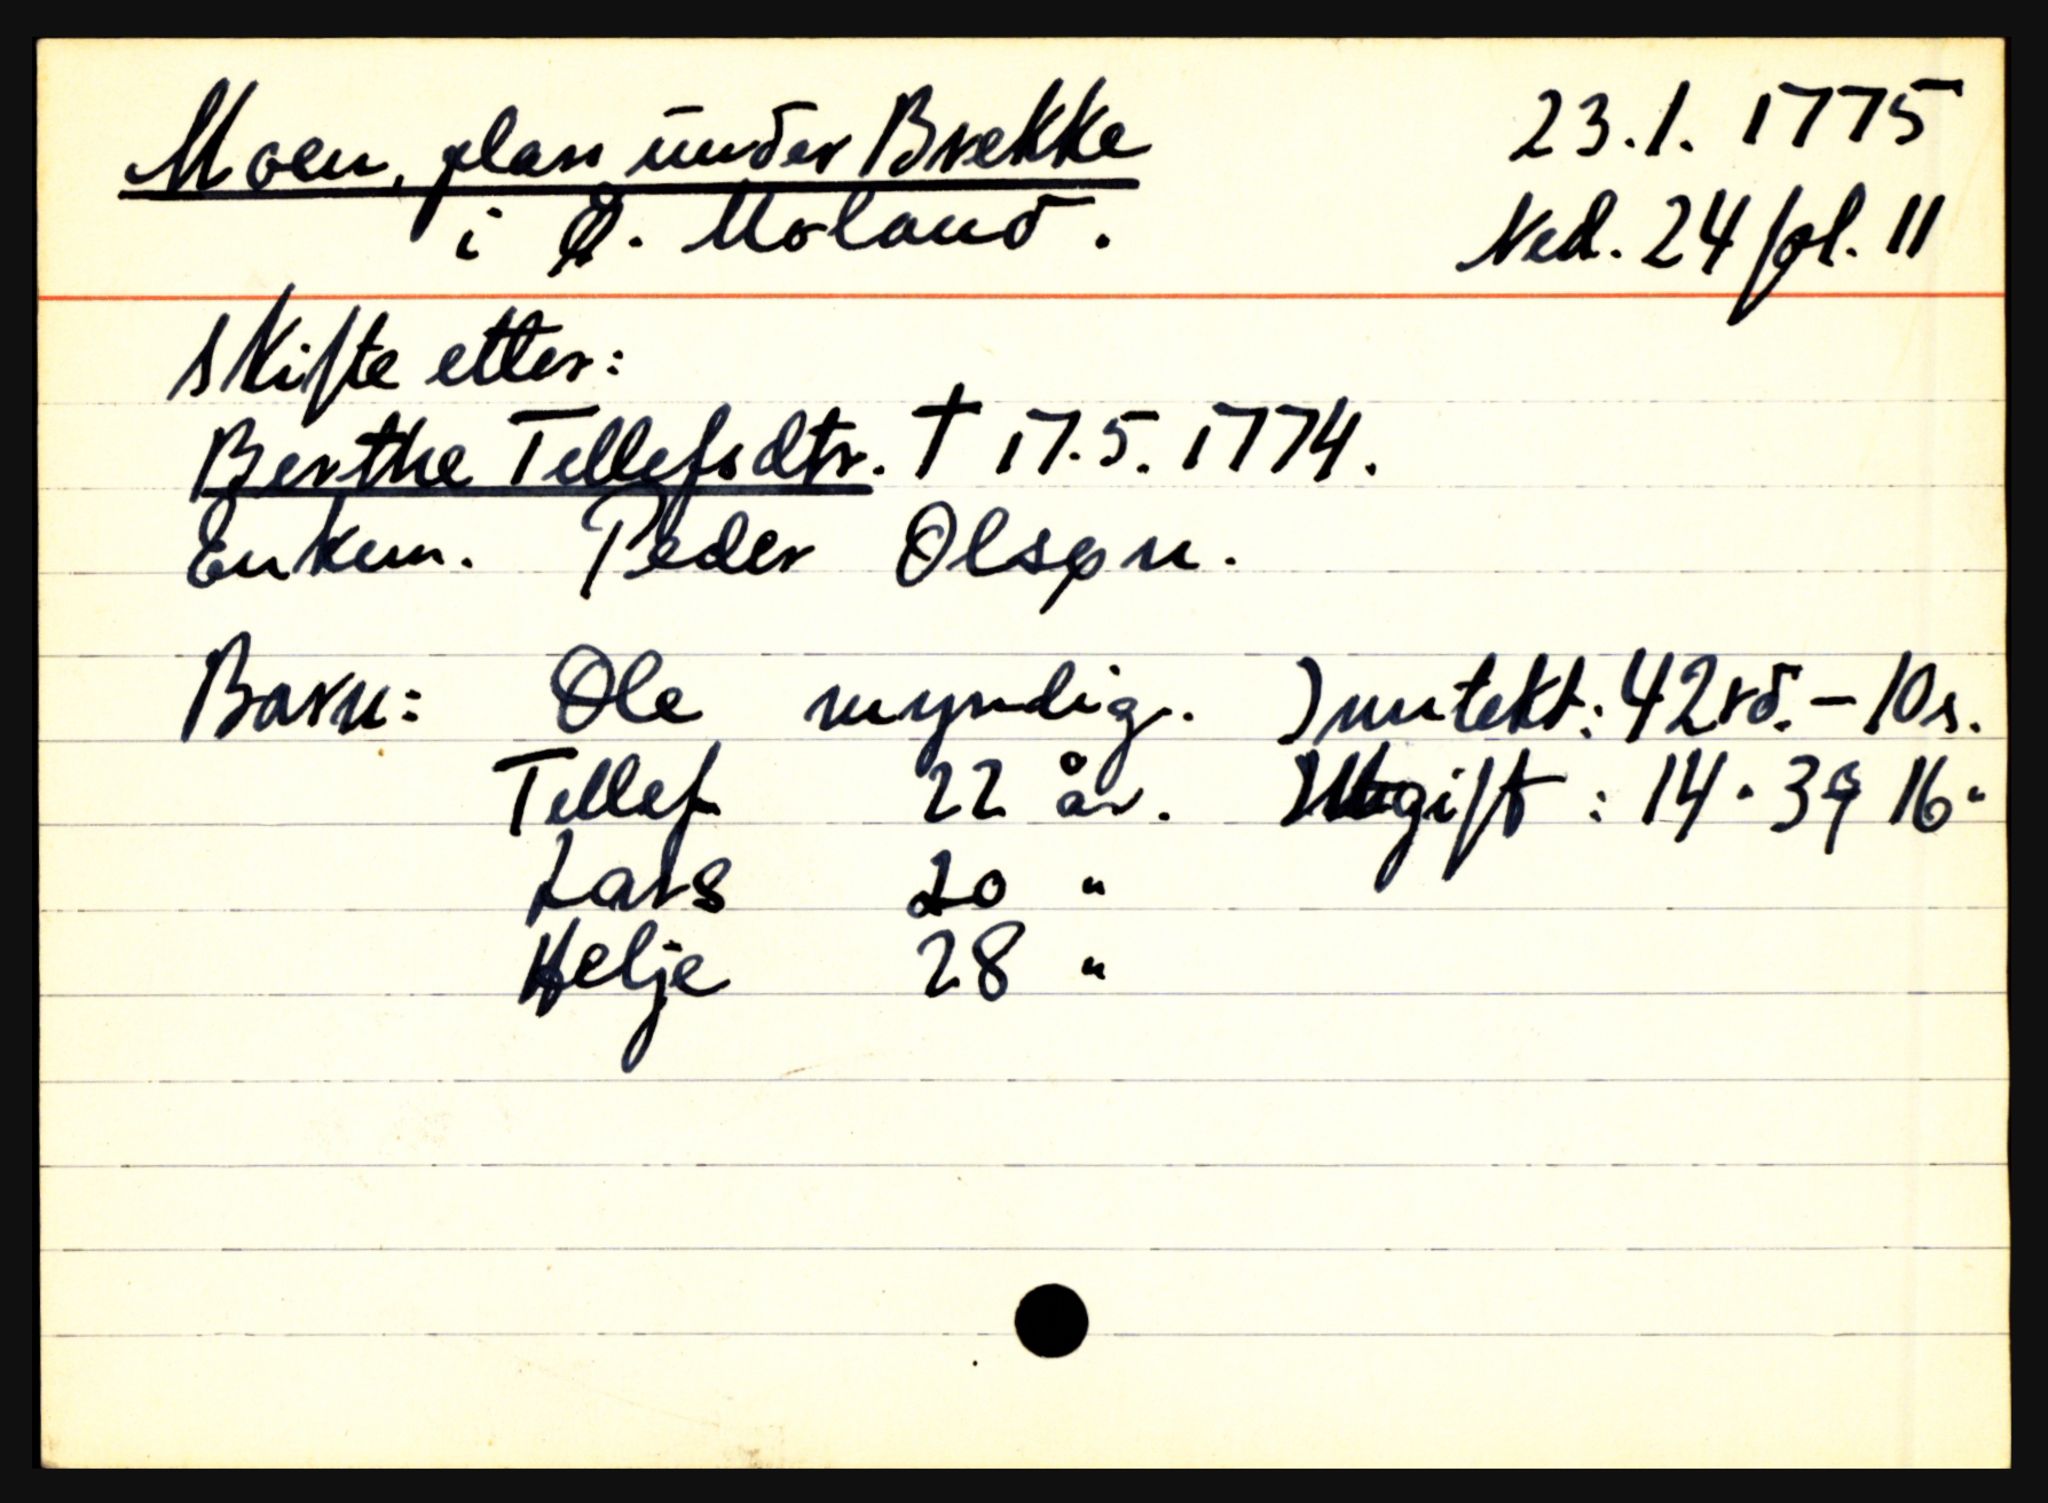 Moen, plass under Brekke 23.1. 1775
i Ø. Moland. Ned. 24 fol. 11
Skifte etter:
Berthe Tellefsdtr. † 17.5. 1774.
Enkem. Peder Olsøn.
Barn: Ole myndig. Inntekt: 42 rd. - 10 s.
Tellef 22 år. Utgift : 14 " 3 q 16 "
Lars 20 "
Helje 28 "